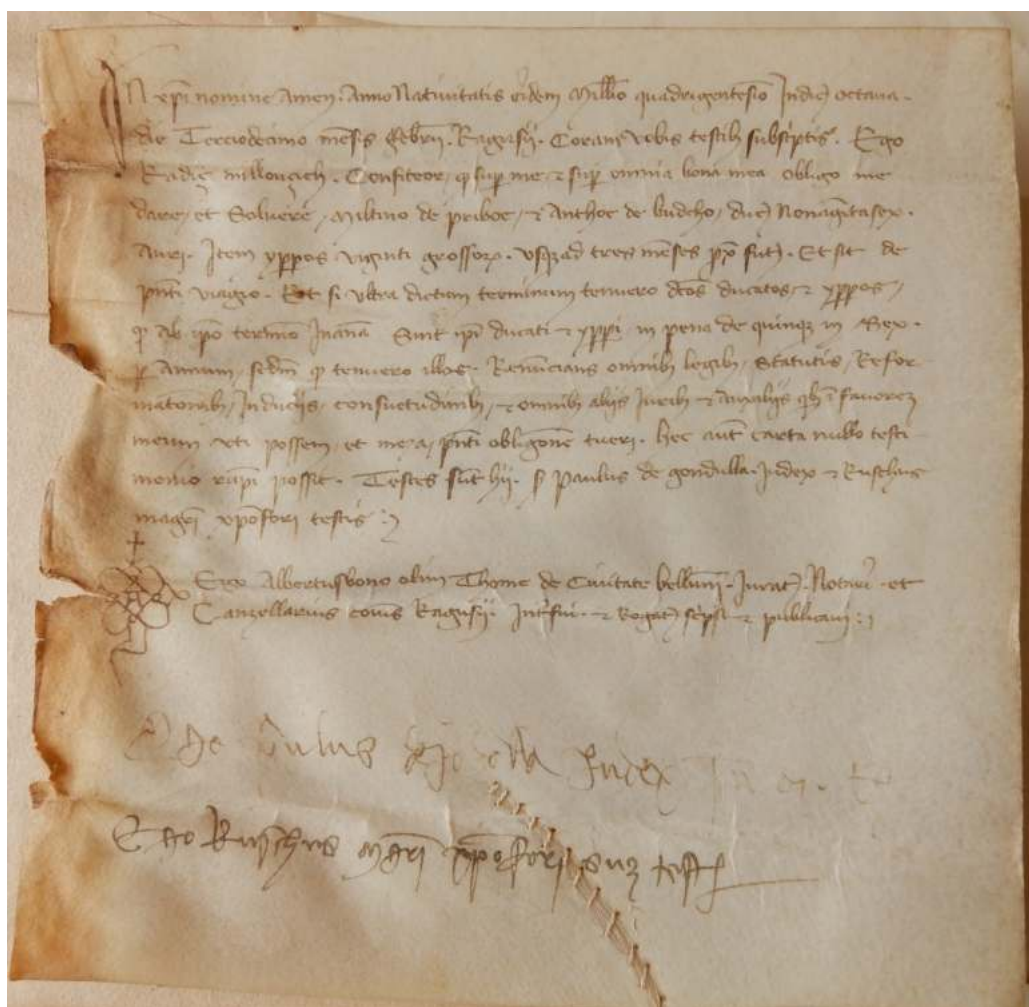 IN xp̄i nomine Amen. Anno Nativitatis eiusdem Mill̄io quadrigentesīo Indic̄ octava.
die Terciodecimo mēsis febr̄ii. Ragusij. Coram vobis testib subsc̄iptis. Ego
Radiç millouçich. Confiteor, q̄ sup̄ me ⁊ sup̄ omnia bona mea obligo me
dare, et Solvere, Miltino de priboe, ⁊ Anthoe de budcho, duc̄ Nonaḡitasex.
Auri. Item yp̄pos viginti grossoꝝ. Usqꝫ ad tres mēses px̄o fut̄. Et sit de
pn̄ti viagio. Et si ultra dictum terminum tenuero dc̄os ducatos, ⁊ yp̄pos,
q̄ ab ip̄o termīo Inan̄a Sint ip̄i ducati ⁊ yp̄pi in pena de quinqꝫ in Sex.
p̄ Annum, sec̄dm q̄ tenuero illos. Renūcians omnib legib, Statutis, Refor
matōnib, Induciis, consuetudinib, ⁊ omnib aliis Iurib ⁊ Auxiliis qb ī favorez
meum uti possem et me a, pn̄ti obliḡonē tueri. hec aut̄ carta nullo testi
monio rūpi possit. Testes sūt hii. s̄ Paulus de gondulla. Iudex ⁊ Ruschus
magr̄i xp̄ofori testis :)
Ego Albertus bono olim Thome de Civitate bellūni. Iurat̄. Notari9. et
Canzellarius cōis Ragusij. Int̄fui. ⁊ Rogat̄ sc̄ipsi ⁊ publicavi :)
Ego Iudex
Ego Ruschus Mgr̄i xp̄ofori suz test̄